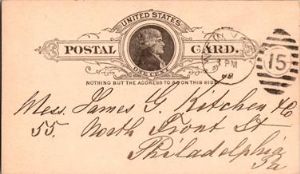 UNITED STATES
POSTAL CARD.
ONE CENT
NOTHING BUT THE ADDRESS TO BE ON THIS SIDE
PM
15
Mess. James G. Kitchen & Co
55. North Front St
Philadelphia
Pa